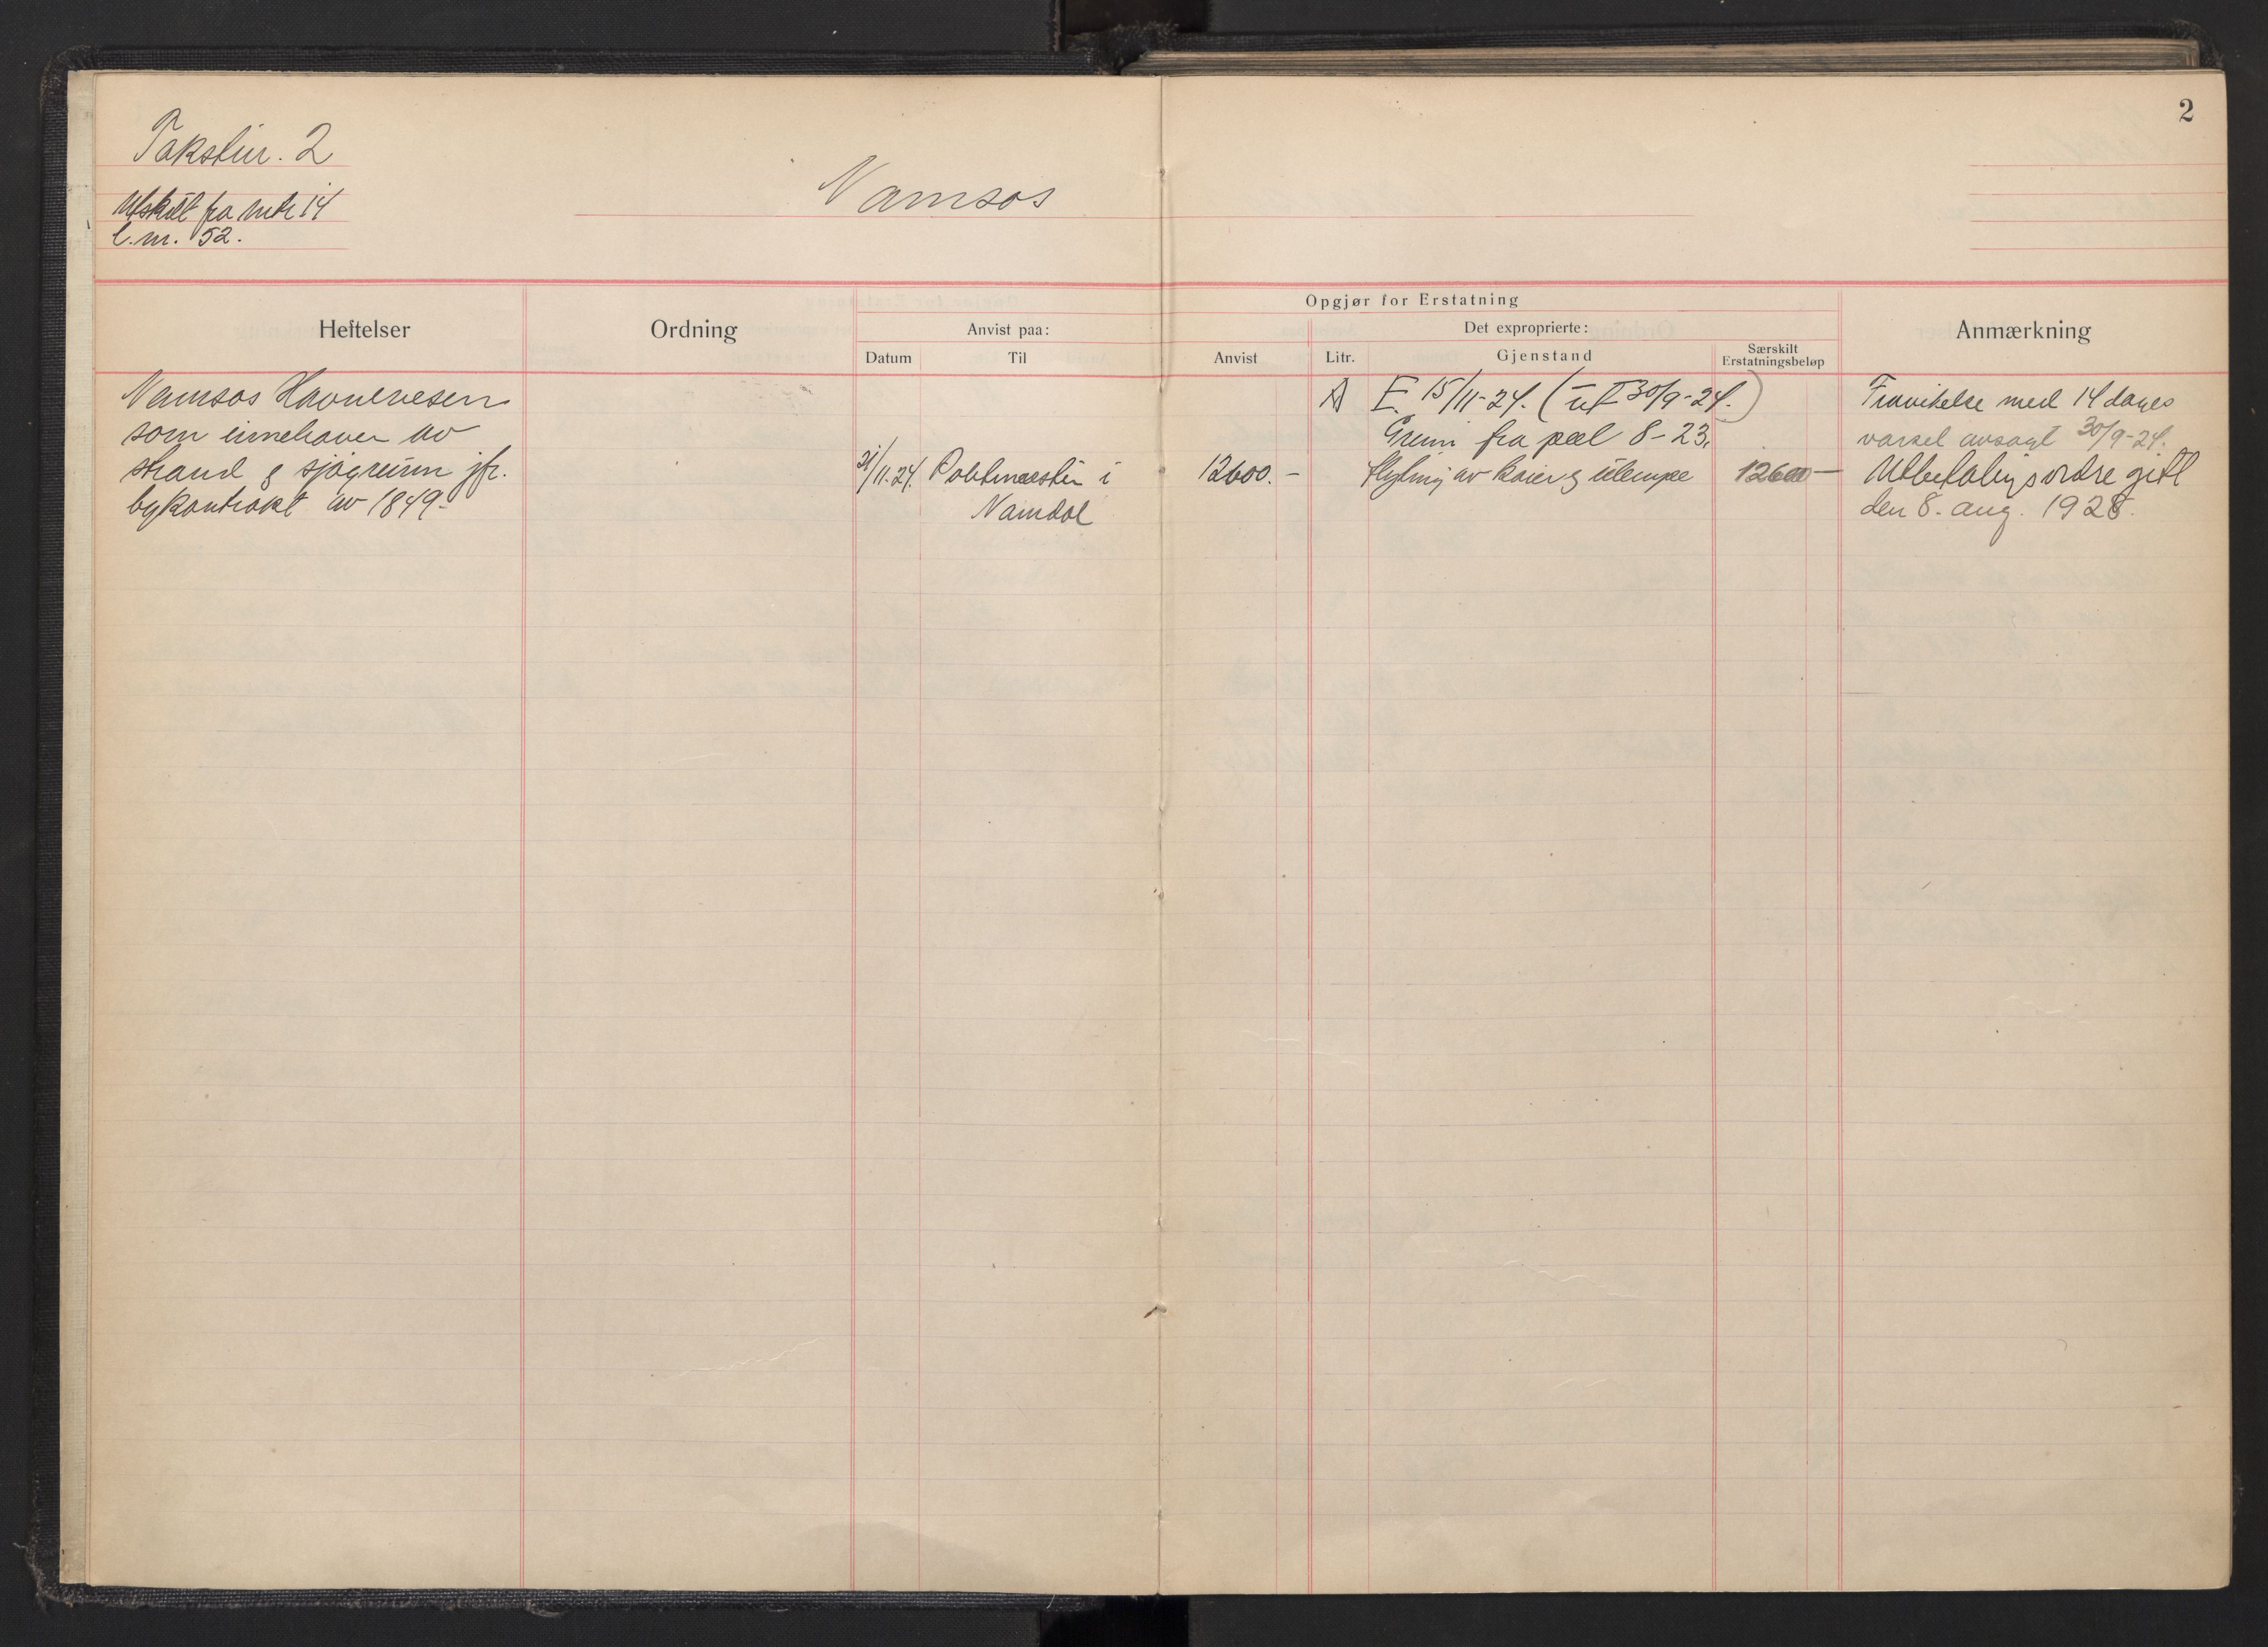 2
Takstnr. 2
Utskilt fra mtr 14
l.nr. 52.
Namsos
Heftelser
Ordning
Opgjør for Erstatning
Anvist paa:
Det exproprierte:
Datum
Til
Anvist
Litr.
Gjenstand
Særskilt
Erstatningsbeløp
Anmærkning
Namsos Havnevesen
som innehaver av
strand & sjøgrunn jfr.
bykontrakt av 1849.
21/11-24. Politimester i
Namdal
12600.-
A E. 15/11-24. (ut 30/9-24.)
Grunn fra pæl 8-23.
Flytning av kaier & ulempe 12600-
Fravikelse med 14 dages
varsel avsagt 30/9-24.
Utbetalingsordre gitt
den 8. aug. 1928.